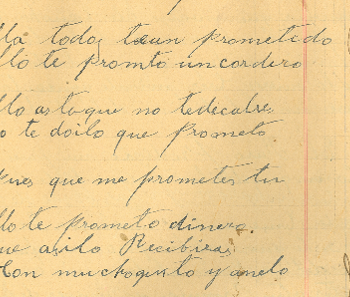 lla todos tean prometido
llo te promto un cordero
llo asta que no tedecalres
o te doilo que prometo.
Pues que me prometes tu
llo te prometo dinero.
que asilo Recibiras
Con muchogusto y anelo